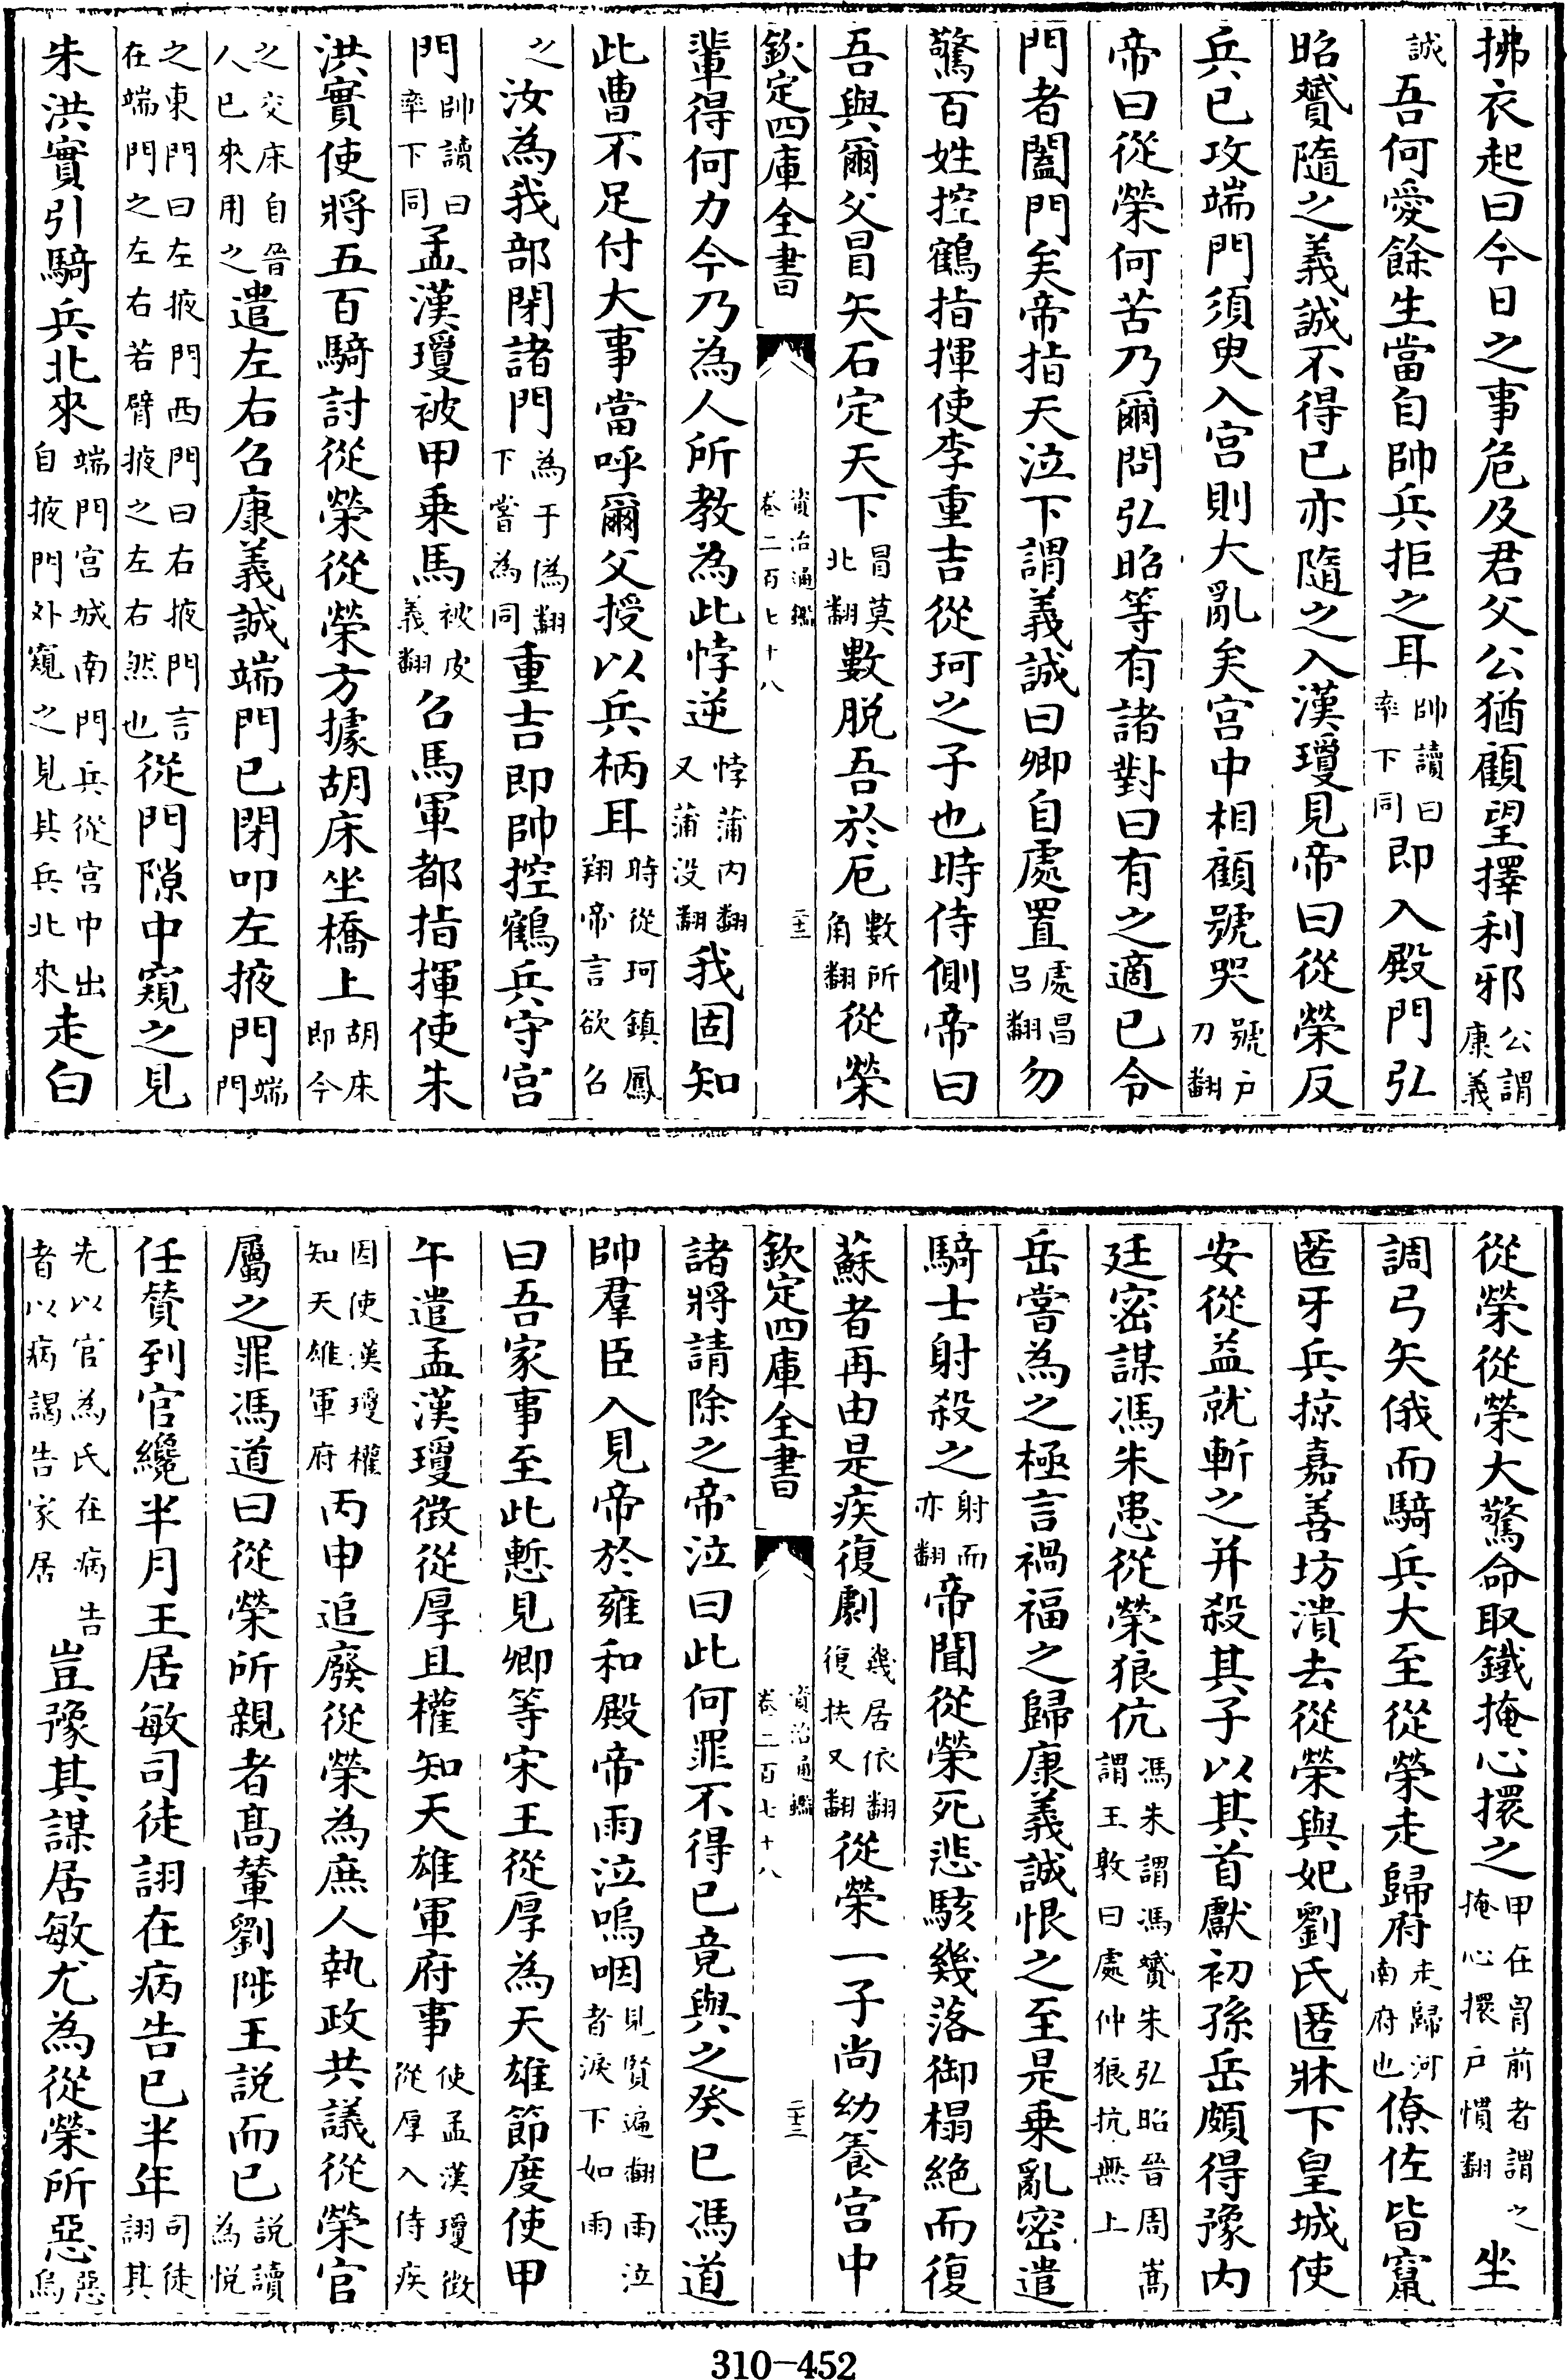 拂衣起曰今日之事危及君父公猶顧望擇利邪公謂康義
誠吾何愛餘生當自帥兵拒之耳帥讀曰率下同即入殿門弘
昭贇隨之義誠不得已亦隨之入漢瓊見帝曰從榮反
兵已攻端門須臾入宫則大亂矣宫中相顧號哭號户刀翻
帝曰從榮何苦乃爾問弘昭等有諸對曰有之適已令
門者闔門矣帝指天泣下謂義誠曰卿自處置處昌吕翻勿
驚百姓控鶴指揮使李重吉從珂之子也時侍側帝曰
吾與爾父冒矢石定天下冒莫北翻數脱吾於厄數所角翻從榮
欽定四庫全書 資治通鑑卷二百七十八 二十二
輩得何力今乃為人所教為此悖逆悖蒲内翻又蒲没翻我固知
此曹不足付大事當呼爾父授以兵柄耳時從珂鎮鳳翔帝言欲召
之汝為我部閉諸門為于偽翻下嘗為同重吉即帥控鶴兵守宫
門帥讀曰率下同孟漢瓊被甲乗馬被皮義翻召馬軍都指揮使朱
洪實使將五百騎討從榮從榮方據胡床坐橋上胡床即今
之交床自晉人已來用之遣左右召康義誠端門已閉叩左掖門端門
之東門曰左掖門西門曰右掖門言在端門之左右若臂掖之左右然也從門隙中窺之見
朱洪實引騎兵北來端門宫城南門兵從宫中出自掖門外窺之見其兵北來走白
從榮從榮大驚命取鐵掩心擐之甲在胷前者謂之掩心擐户慣翻坐
調弓矢俄而騎兵大至從榮走歸府走歸河南府也僚佐皆竄
匿牙兵掠嘉善坊潰去從榮與妃劉氏匿牀下皇城使
安從益就斬之并殺其子以其首獻初孫岳頗得豫内
廷密謀馮朱患從榮狼伉馮朱謂馮贇朱弘昭晉周嵩謂王敦曰處仲狼抗無上
岳嘗為之極言禍福之歸康義誠恨之至是乗亂密遣
騎士射殺之射而亦翻帝聞從榮死悲駭幾落御榻絶而復
蘇者再由是疾復劇幾居依翻復扶又翻從榮一子尚幼養宫中
欽定四庫全書 資治通鑑卷二百七十八 二十三
諸將請除之帝泣曰此何罪不得已竟與之癸巳馮道
帥羣臣入見帝於雍和殿帝雨泣嗚咽見賢遍翻雨泣者淚下如雨
曰吾家事至此慙見卿等宋王從厚為天雄節度使甲
午遣孟漢瓊徵從厚且權知天雄軍府事使孟漢瓊徵從厚入侍疾
因使漢瓊權知天雄軍府丙申追廢從榮為庶人執政共議從榮官
屬之罪馮道曰從榮所親者髙輦劉陟王説而已説讀為悦
任贊到官纔半月王居敏司徒詡在病告已半年司徒詡其
先以官為氏在病告者以病謁告家居豈豫其謀居敏尤為從榮所惡惡烏
310-452